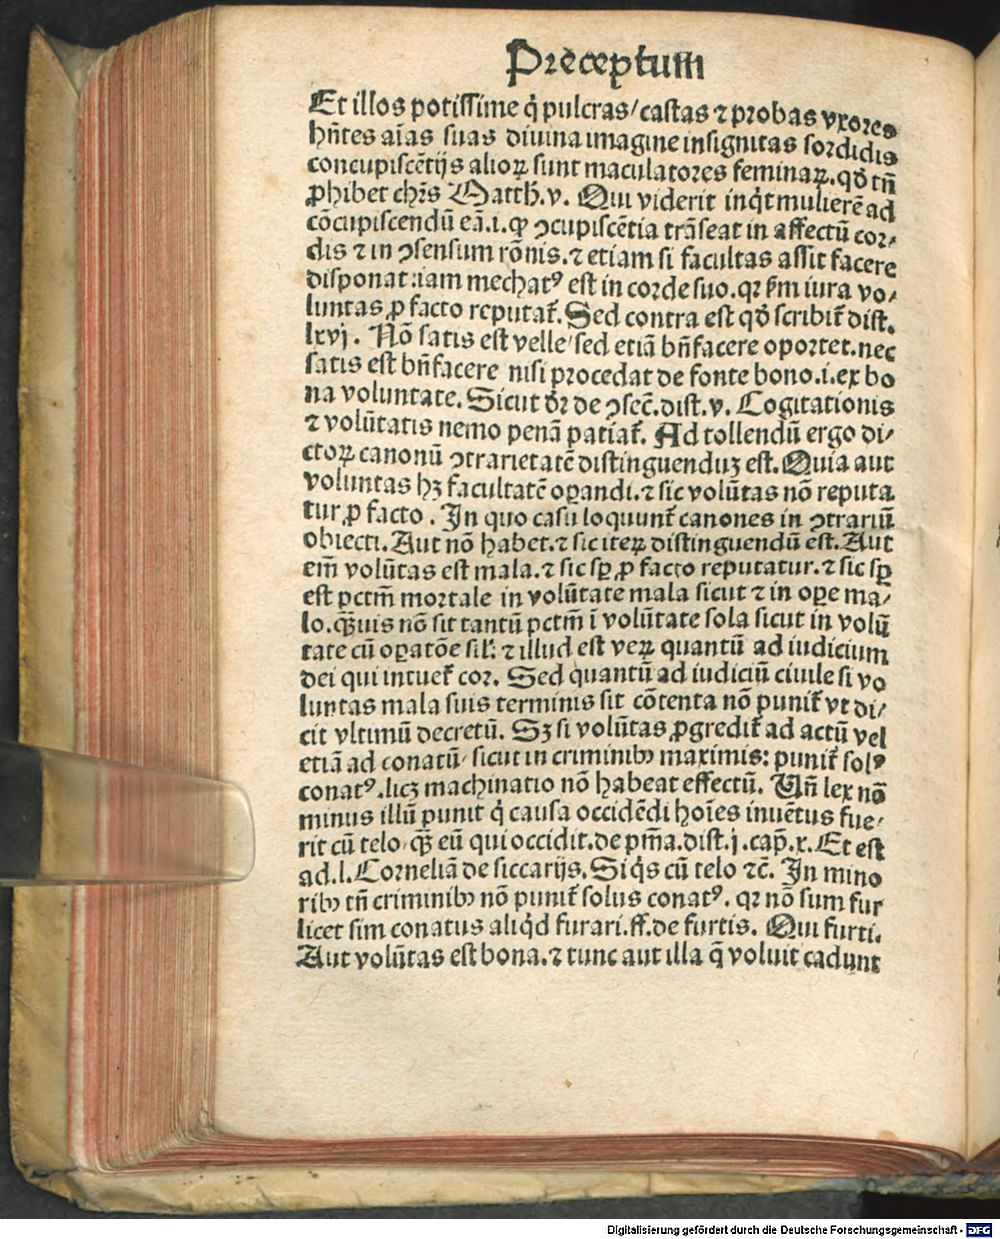 Preceptum
Et illos potissime q̇ pulcras/castas ⁊ probas vxores
hn̄tes aīas suas diuina imagine insignitas sordidis
concupiscētijs alioꝝ sunt maculatores feminaꝝ. qd̓ tn̄
ꝓhibet chr̄s Matth. v. Qui viderit inq̇t mulierē ad
cōcupiscendū eā.i. ꝙ ꝯcupiscētia trāseat in affectū cor⸗
dis ⁊ in ꝯsensum rōnis. ⁊ etiam si facultas assit facere
disponat: iam mechatꝰ est in corde suo. qꝛ ẜm iura vo⸗
luntas ꝓ facto reputat̄. Sed contra est qd̓ scribit̄ dist.
lxvj. Nō satis est velle/sed etiā bn̄facere oportet. nec
satis est bn̄facere nisi procedat de fonte bono.i. ex bo
na voluntate. Sicut dr̄ de ꝯsec̄. dist. v. Cogitationis
⁊ volūtatis nemo penā patiat̄. Ad tollendū ergo di⸗
ctoꝝ canonū ꝯtrarietatē distinguenduꝫ est. Quia aut
voluntas hꝫ facultatē oꝑandi. ⁊ sic volūtas nō reputa
tur ꝓ facto. In quo casu loquunt̄ canones in ꝯtrariū
obiecti. Aut nō habet. ⁊ sic iteꝝ distinguendū est. Aut
em̄ volūtas est mala. ⁊ sic sꝑ ꝓ facto reputatur. ⁊ sic sꝑ
est pctm̄ mortale in volūtate mala sicut ⁊ in oꝑe ma⸗
lo. qꝫuis nō sit tantū pctm̄ ī volūtate sola sicut in volū
tate cū oꝑatōe sil̄: ⁊ illud est veꝝ quantū ad iudicium
dei qui intuet̄ cor. Sed quantū ad iudiciū ciuile si vo
luntas mala suis terminis sit cōtenta nō punit̄ vt di⸗
cit vltimū decretū. Sꝫ si volūtas ꝓgredit̄ ad actū vel
etiā ad conatū/ sicut in criminibꝰ maximis: punit̄ solꝰ
conatꝰ. licꝫ machinatio nō habeat effectū. Vn̄ lex nō
minus illū punit q̇ causa occidēdi hoīes inuētus fue⸗
rit cū telo/ qꝫ eū qui occidit. de pn̄ia. dist. j. cap̄. x. Et est
ad. l. Corneliā de siccarijs. Si q̇s cū telo ⁊c̄. In mino
ribꝰ tn̄ criminibꝰ nō punit̄ solus conatꝰ. qꝛ nō sum fur
licet sim conatus aliqd̓ furari. ff. de furtis. Qui furti.
Aut volūtas est bona. ⁊ tunc aut illa q̄ voluit cadunt
Digitalisierung gefördert durch die Deutsche Forschungsgemeinschaft - DFG